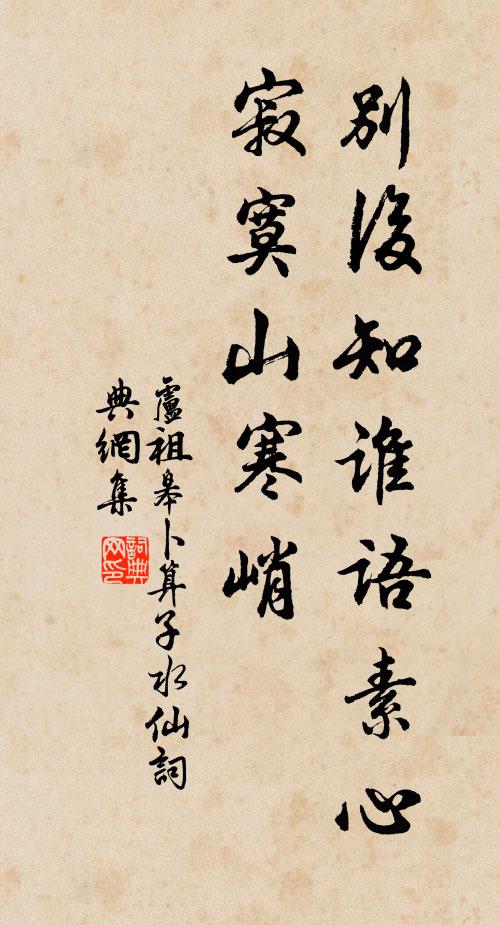 別後知谁语素心
寂寞山寒峭
盧祖皋卜算子水仙詞
典網集
詞典網印